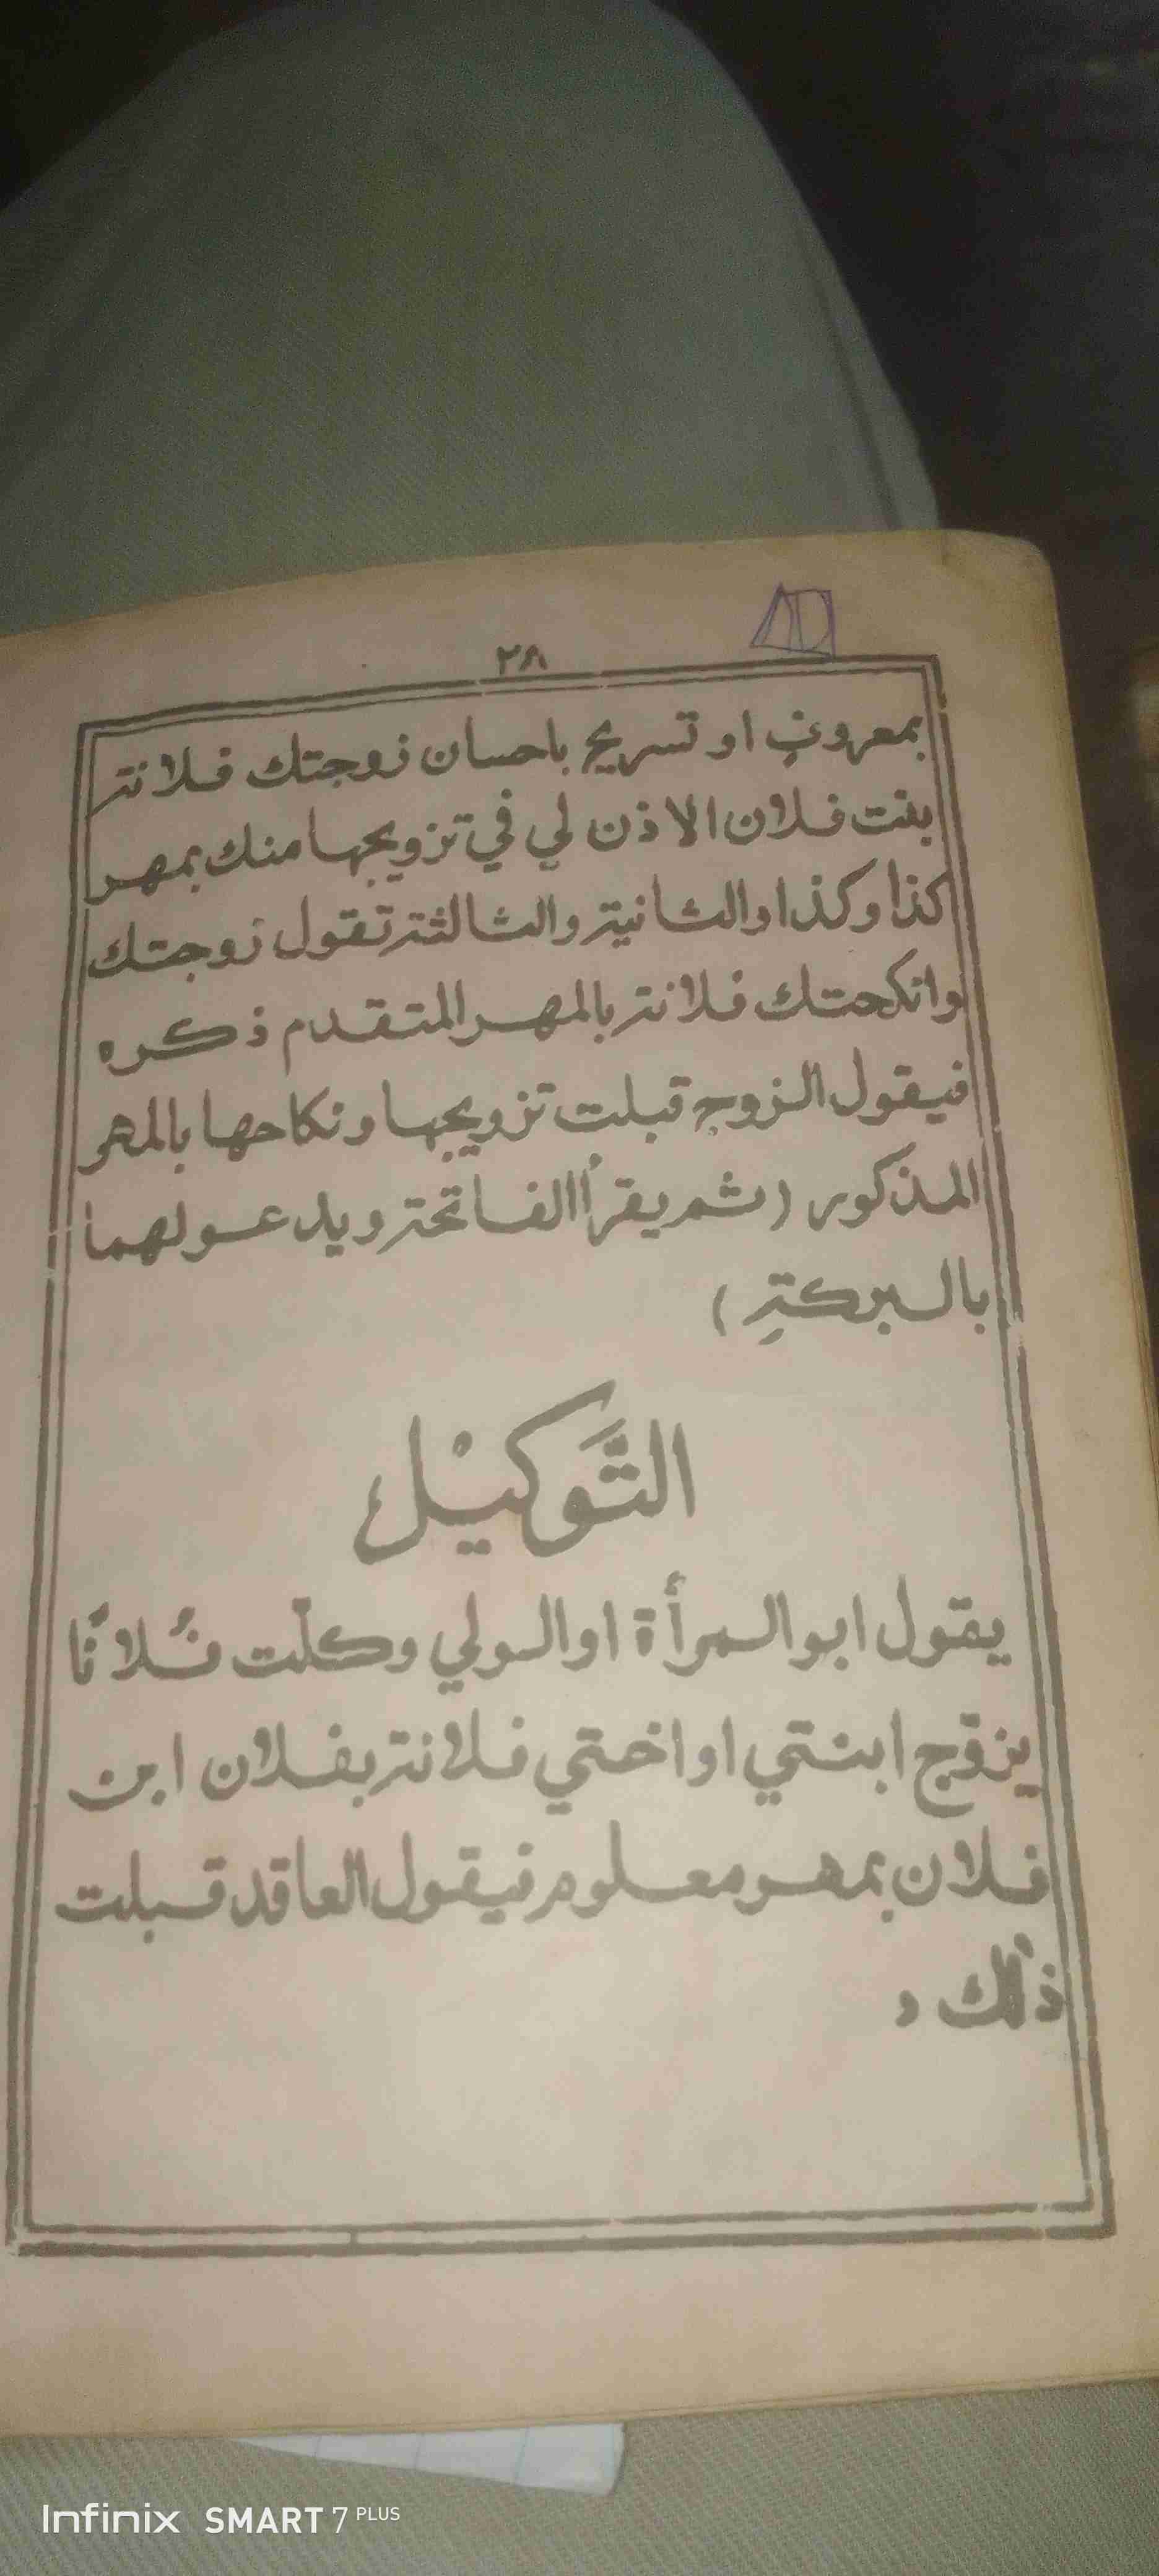 ٢٨
بمعروفٍ او تسريح باحسان زوجتك فلانة
بنت فلان الاذن لي في تزويجها منك بمهر
كذا وكذا والثانية والثالثة تقول زوجتك
وانكحتك فلانة بالمهر المتقدم ذكره
فيقول الزوج قبلت تزويجها ونكاحها بالمهر
المذكور (ثم يقرأ الفاتحة ويدعو لهما
بالبركةِ)
التَّوكيْل
يقول ابو المرأة او الولي وكلّت فُلانًا
يزوّج ابنتي او اختي فلانة بفلان ابن
فلان بمهر معلوم فيقول العاقد قبلت
ذلك ،
Infinix SMART 7 PLUS